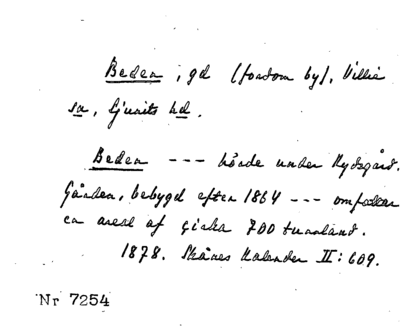 Beden, gd (fordom by), Villie
sn, Ljunits hd.
Beden --- hörde under Rydsgård.
Gården, bebygd efter 1864 --- omfattar
en areal af cirka 700 tunnland.
1878. Skånes Kalender II: 609.
Nr 7254